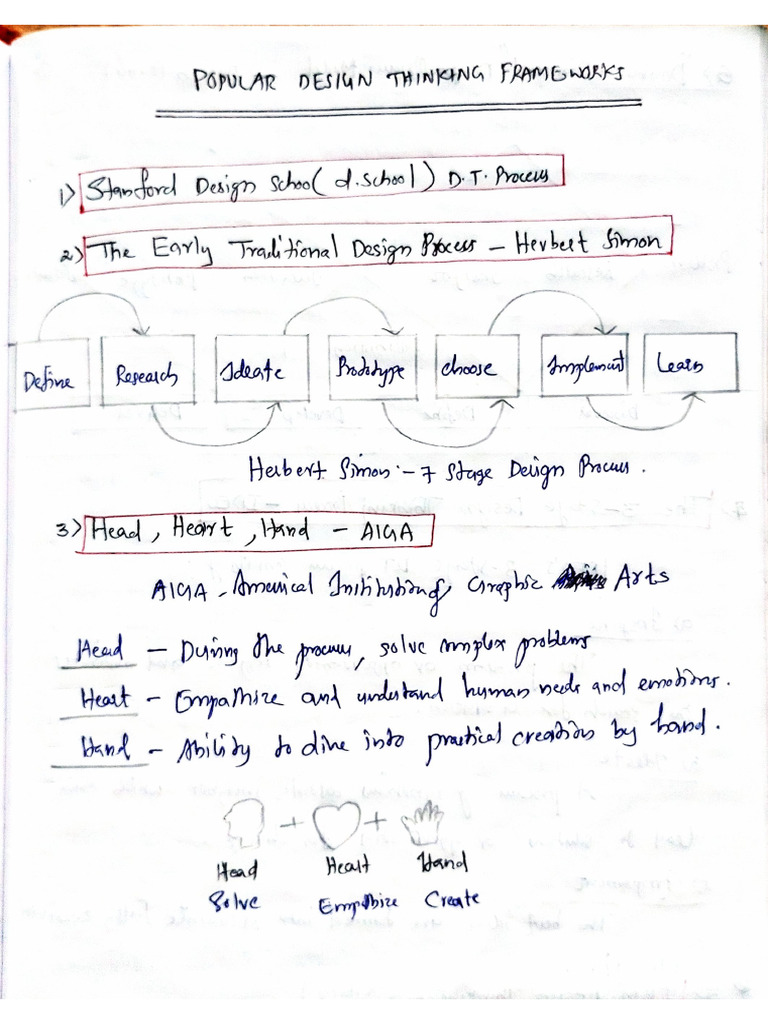 POPULAR DESIGN THINKING FRAMEWORKS
1) Stanford Design School (d.school) D.T. Process
2) The Early Traditional Design Process - Herbert Simon
Define Research Ideate Prototype choose Implement Learn
Herbert Simon - 7 Stage Design Process.
3) Head, Heart, Hand - AIGA
AIGA - American Institution of Graphic Arts
Head - During the process, solve complex problems
Heart - Empathize and understand human needs and emotions.
Hand - Ability to dive into practical creation by hand.
+ +
Head Heart Hand
Solve Empathize Create